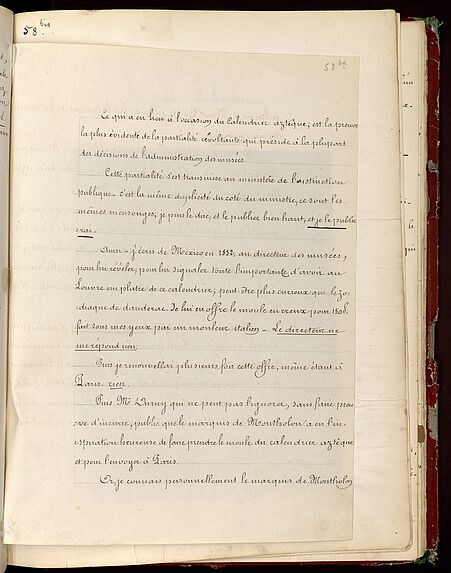 58 bis
58 bis
Ce qui a eu lieu à l'occasion du Calendrier aztèque, est la preuve
la plus évidente de la partialité révoltante qui préside à la plupart
des décisions de l'administration des musées.
Cette partialité s'est transmise au ministère de l'instruction
publique - c'est la même duplicité du coté du ministre, ce sont les
mêmes mensonges; je puis le dire, et le publier bien haut, et je le publie
rai.
Ainsi - j'écris de Mexico en 1832, au directeur des musées,
pour lui révéler, pour lui signaler toute l'importance d'avoir au
Louvre un plâtre de ce calendrier, peut-être plus curieux que le zo-
diaque de danderac. Je lui en offre le moule en creux pour 150 f.
fait sous mes yeux par un mouleur italien - Le directeur ne
me répond rien.
Puis je renouvellai plusieurs fois cette offre, même étant à
Paris. rien.
Puis Mr Duruy qui ne peut pas l'ignorer, sans faire preu
ve d'incurie, publie que le marquis de Montholon a eu l'in-
spiration heureuse de faire prendre le moule du calendrier aztèque
et pour l'envoyer à Paris.
Or, je connais personnellement le marquis de Montholon